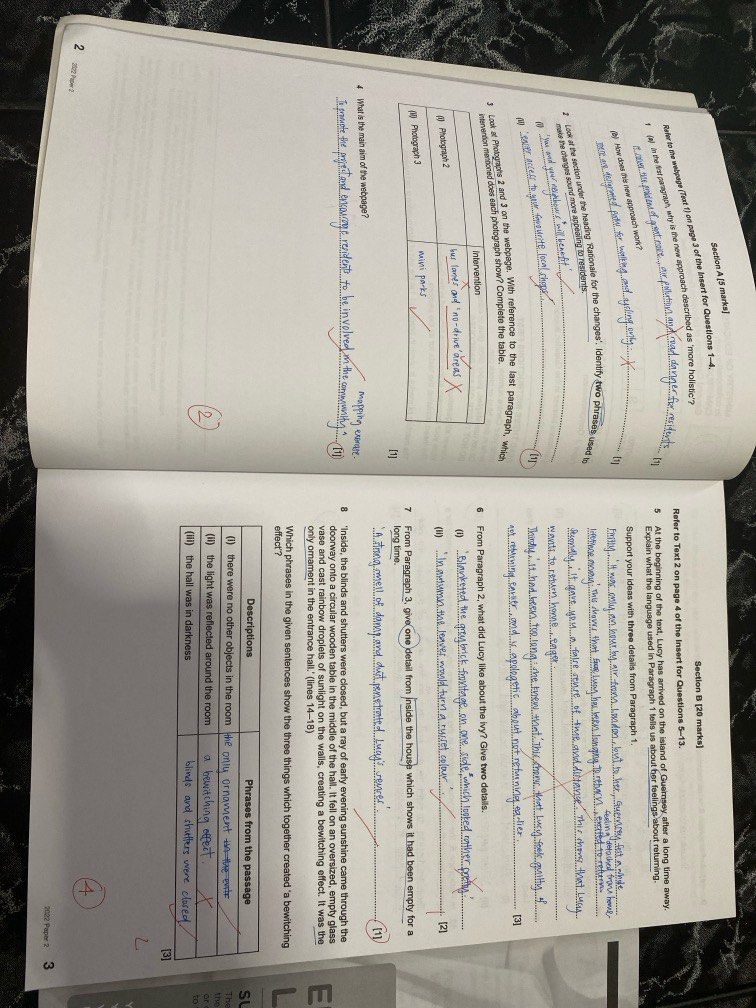 Section A [5 marks]
Refer to the webpage (Text 1) on page 3 of the Insert for Questions 1–4.
1 (a) In the first paragraph, why is the new approach described as 'more holistic'?
It solves the problem of great noise, air pollution and road danger for residents.
[1]
(b) How does this new approach work?
There are designated paths for walking and cycling only.
[1]
2 Look at the section under the heading 'Rationale for the changes'. Identify two phrases used to
make the changes sound more appealing to residents.
(i) 'You and your neighbours will benefit'
(ii) 'easier access to your favourite local shops'
[1]
3 Look at Photographs 2 and 3 on the webpage. With reference to the last paragraph, which
intervention mentioned does each photograph show? Complete the table.
Intervention
(i) Photograph 2
bus lanes and 'no-drive' areas
(ii) Photograph 3
mini parks
[1]
4 What is the main aim of the webpage?
mapping exercise.
To promote the project and encourage residents to be involved in the community
[1]
2
2
2022 Paper 2
Section B [20 marks]
Refer to Text 2 on page 4 of the Insert for Questions 5–13.
5 At the beginning of the text, Lucy has arrived on the island of Guernsey after a long time away.
Explain what the language used in Paragraph 1 tells us about her feelings about returning.
Support your ideas with three details from Paragraph 1.
Firstly, 'It was only an hour by air from London, but to her, Guernsey felt a whole
feeling banished from home
lifetime away.' This shows that Lucy has been longing to return
Secondly, 'it gave you a false sense of time and distance'. This shows that Lucy
wants to return home
Thirdly, 'it had been too long, she knew that'. This shows that Lucy feels guilty of
not returning earlier and is apologetic about not returning earlier
[3]
6 From Paragraph 2, what did Lucy like about the ivy? Give two details.
(i) 'Blanketed the grey brick frontage on one side', which looked rather pretty'
(ii) 'In autumn the leaves would turn a russet colour'
[2]
7 From Paragraph 3, give one detail from inside the house which shows it had been empty for a
long time.
'A strong smell of damp and dust penetrated Lucy's senses'
[1]
8 'Inside, the blinds and shutters were closed, but a ray of early evening sunshine came through the
doorway onto a circular wooden table in the middle of the hall. It fell on an oversized, empty glass
vase and cast rainbow droplets of sunlight on the walls, creating a bewitching effect. It was the
only ornament in the entrance hall.' (lines 14–18)
Which phrases in the given sentences show the three things which together created 'a bewitching
effect'?
Descriptions
Phrases from the passage
(i) there were no other objects in the room
the only ornament
(ii) the light was reflected around the room
a bewitching effect
(iii) the hall was in darkness
blinds and shutters were closed
[3]
4
2022 Paper 2
3